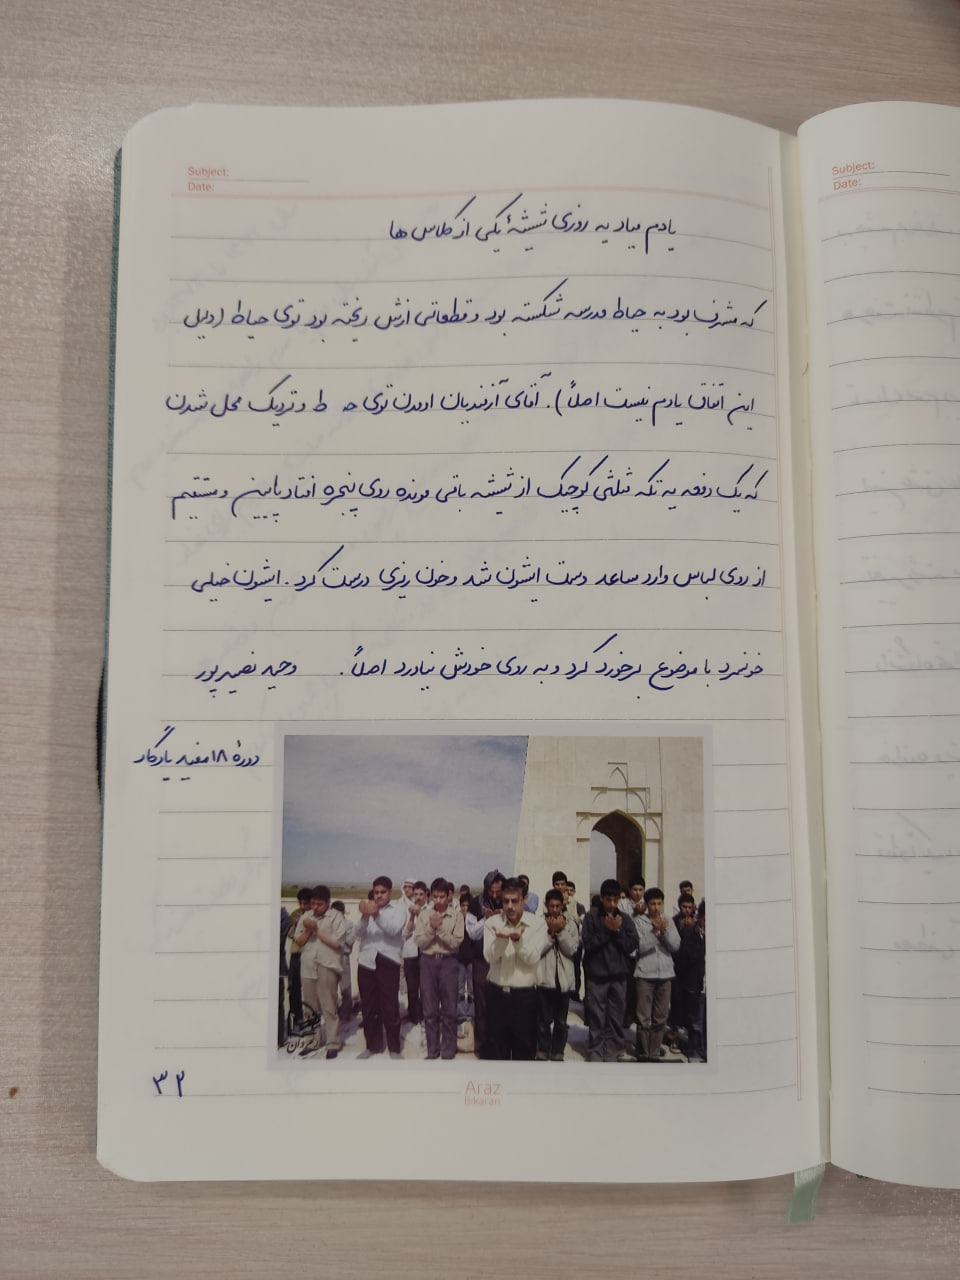 Subject:
Date:
یادم میاد یه روزی شیشهٔ یکی از کلاس ها
که مشرف بود به حیاط مدرسه شکسته بود و قطعاتی ازش ریخته بود توی حیاط (دلیل
این اتفاق یادم نیست اصلاً). آقای آژندیان اومدن توی حـ ـاط و نزدیک محل شدن
که یک دفعه یه تکه مثلثی کوچیک از شیشه باقی مونده روی پنجره افتاد پایین و مستقیم
از روی لباس وارد ساعد دست ایشون شد و خون ریزی درست کرد. ایشون خیلی
خونسرد با موضوع برخورد کرد و به روی خودش نیاورد اصلاً. وحید نصیرپور
دورهٔ ۱۸ مفید یادگار
۳۲
Araz
Bikaran
Subject:
Date: